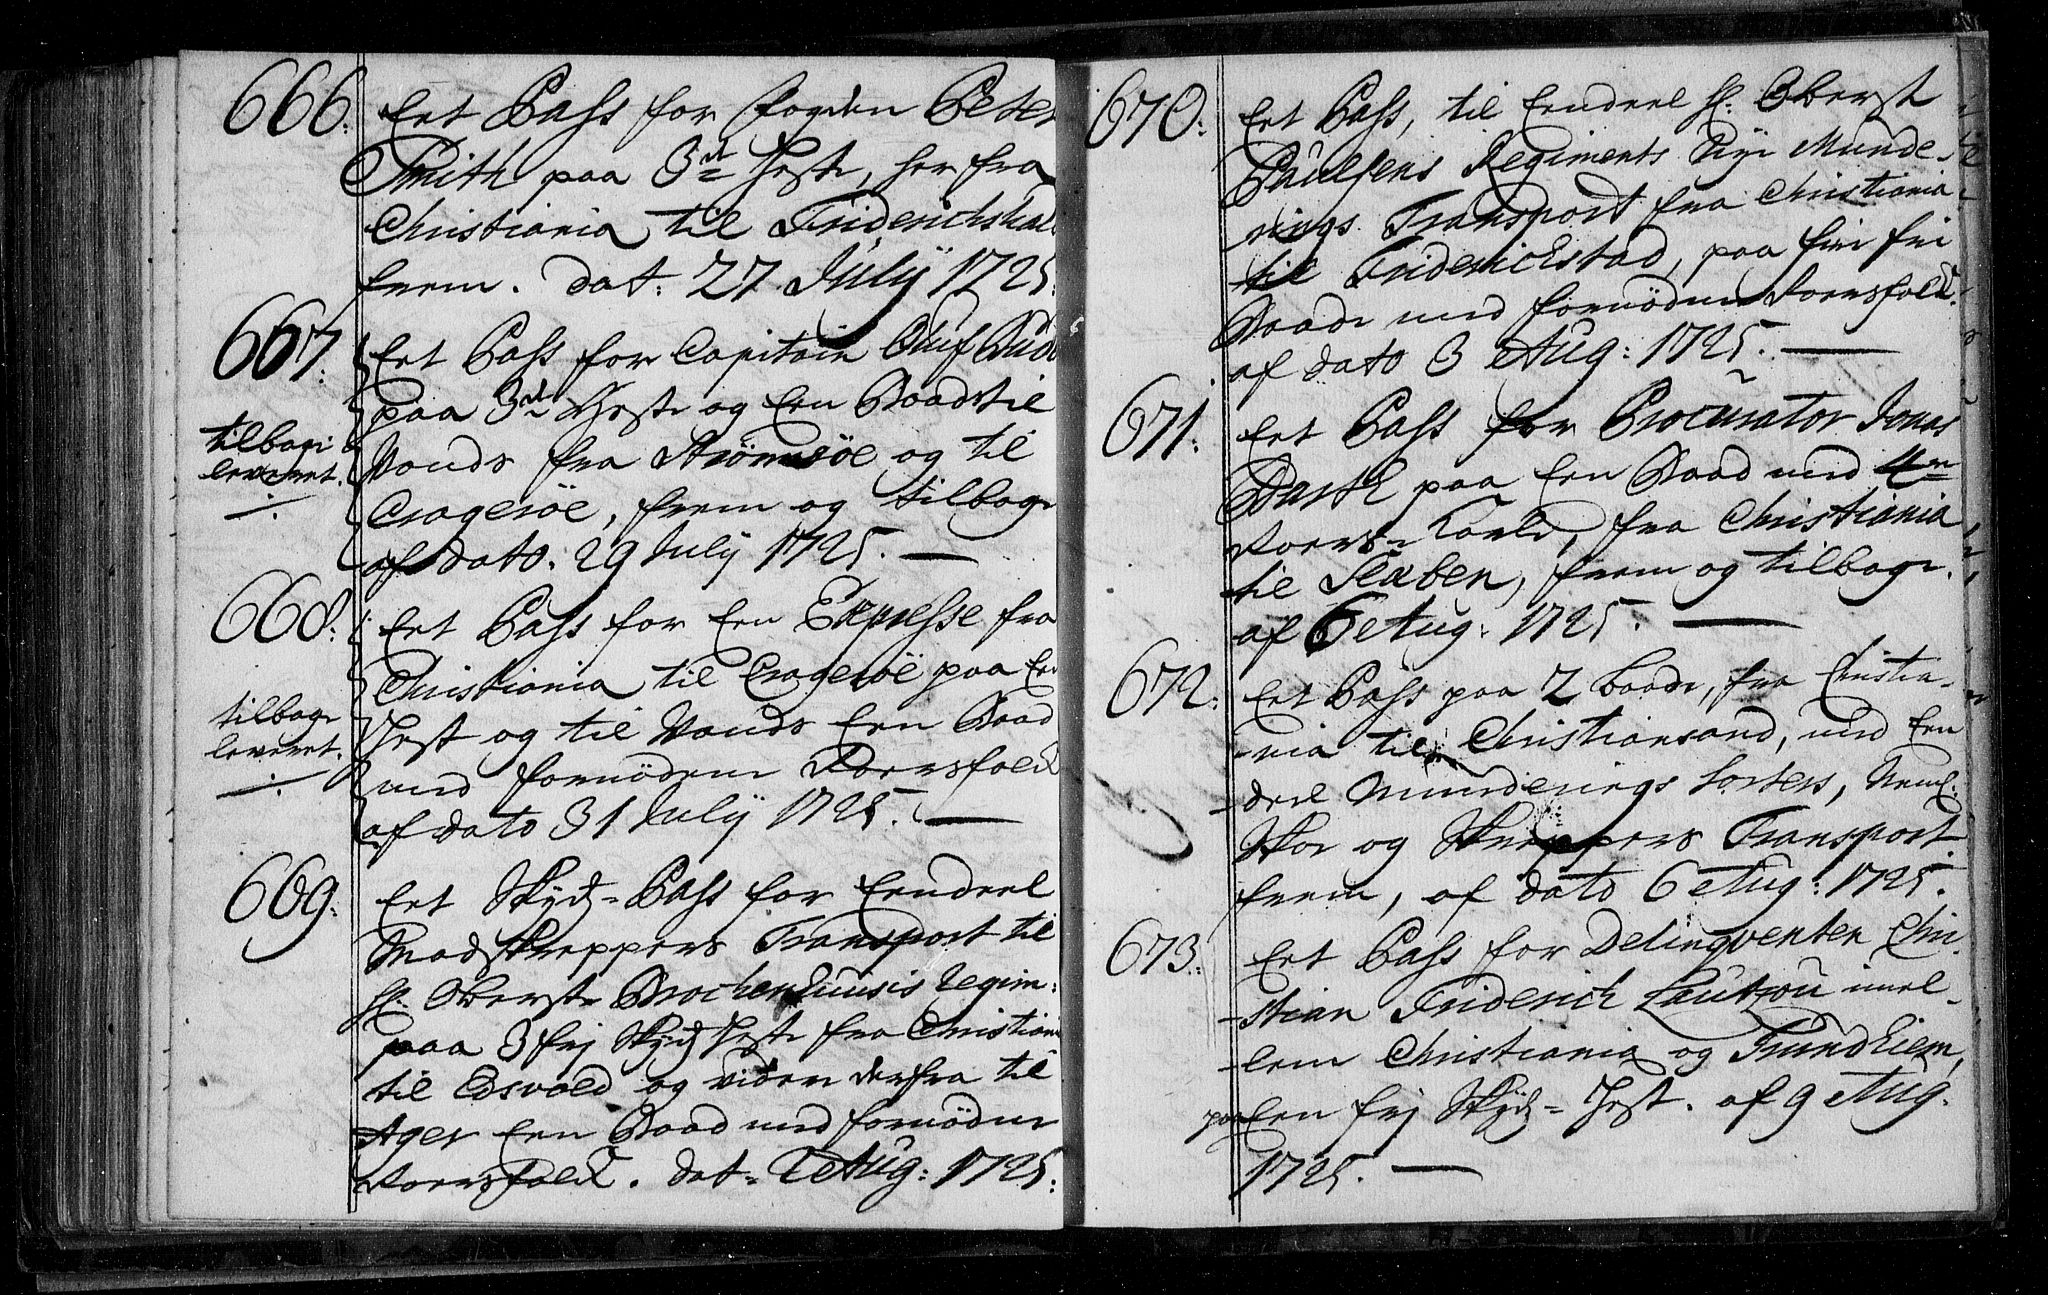 666. Eet Pass for fogden Peter
Smith paa 3de Heste, her fra
Christiania til Friderichshald
frem. dat: 27 Julÿ 1725.
667. Eet Pass for Capitain Oluf
paa 3de Heste og Een Baad til
tilbage
leveret.
Vands fra Strömsöe og til
Crageröe, frem og tilbage
af dato. 29 Julÿ 1725.
668. Eet Pass for Een Expresse fra
Christiania til Crageröe paa Een
tilbage
leveret.
Hest og til Vands Een Baad
med fornöden Roersfolk
af dato 31 Julÿ 1725.
669. Eet Skyds-Pass for Eendeel
Madskreppers Transport til
Hr. Oberst Brochenhuusis Regim:
paa 3 frj Skyds Heste fra Christiania
til Edsvold og videre derfra til
Ager Een Baad med fornöden
Roersfolk. dat. Aug: 1725.
670. Eet Pass, til Eendeel Hr. Oberst
Paulsens Regiments Nye Munde-
rings Transport fra Christiania
til Friderichstad, paa fire fri
Baade med fornöden Roersfolk.
af dato 3 Aug: 1725.
671. Eet Pass for Procurator Jonas
paa Een Baad med 4re
Roers-Karle, fra Christiania
til frem og tilbage.
af 6 Aug: 1725.
672. Eet Pass paa 2 baade, fra Christia-
-nia til Christiansand, med Een
deel Munderings Sorters, Neml:
Skoe og Skreppers Transport
frem, af dato 6 Aug: 1725.
673. Eet Pass for Delinqventen Chri-
-stian Friderich imel-
-lem Christiania og Trundhiem,
paa Een frj Skyds-Hest. af 9 Aug.
1725.